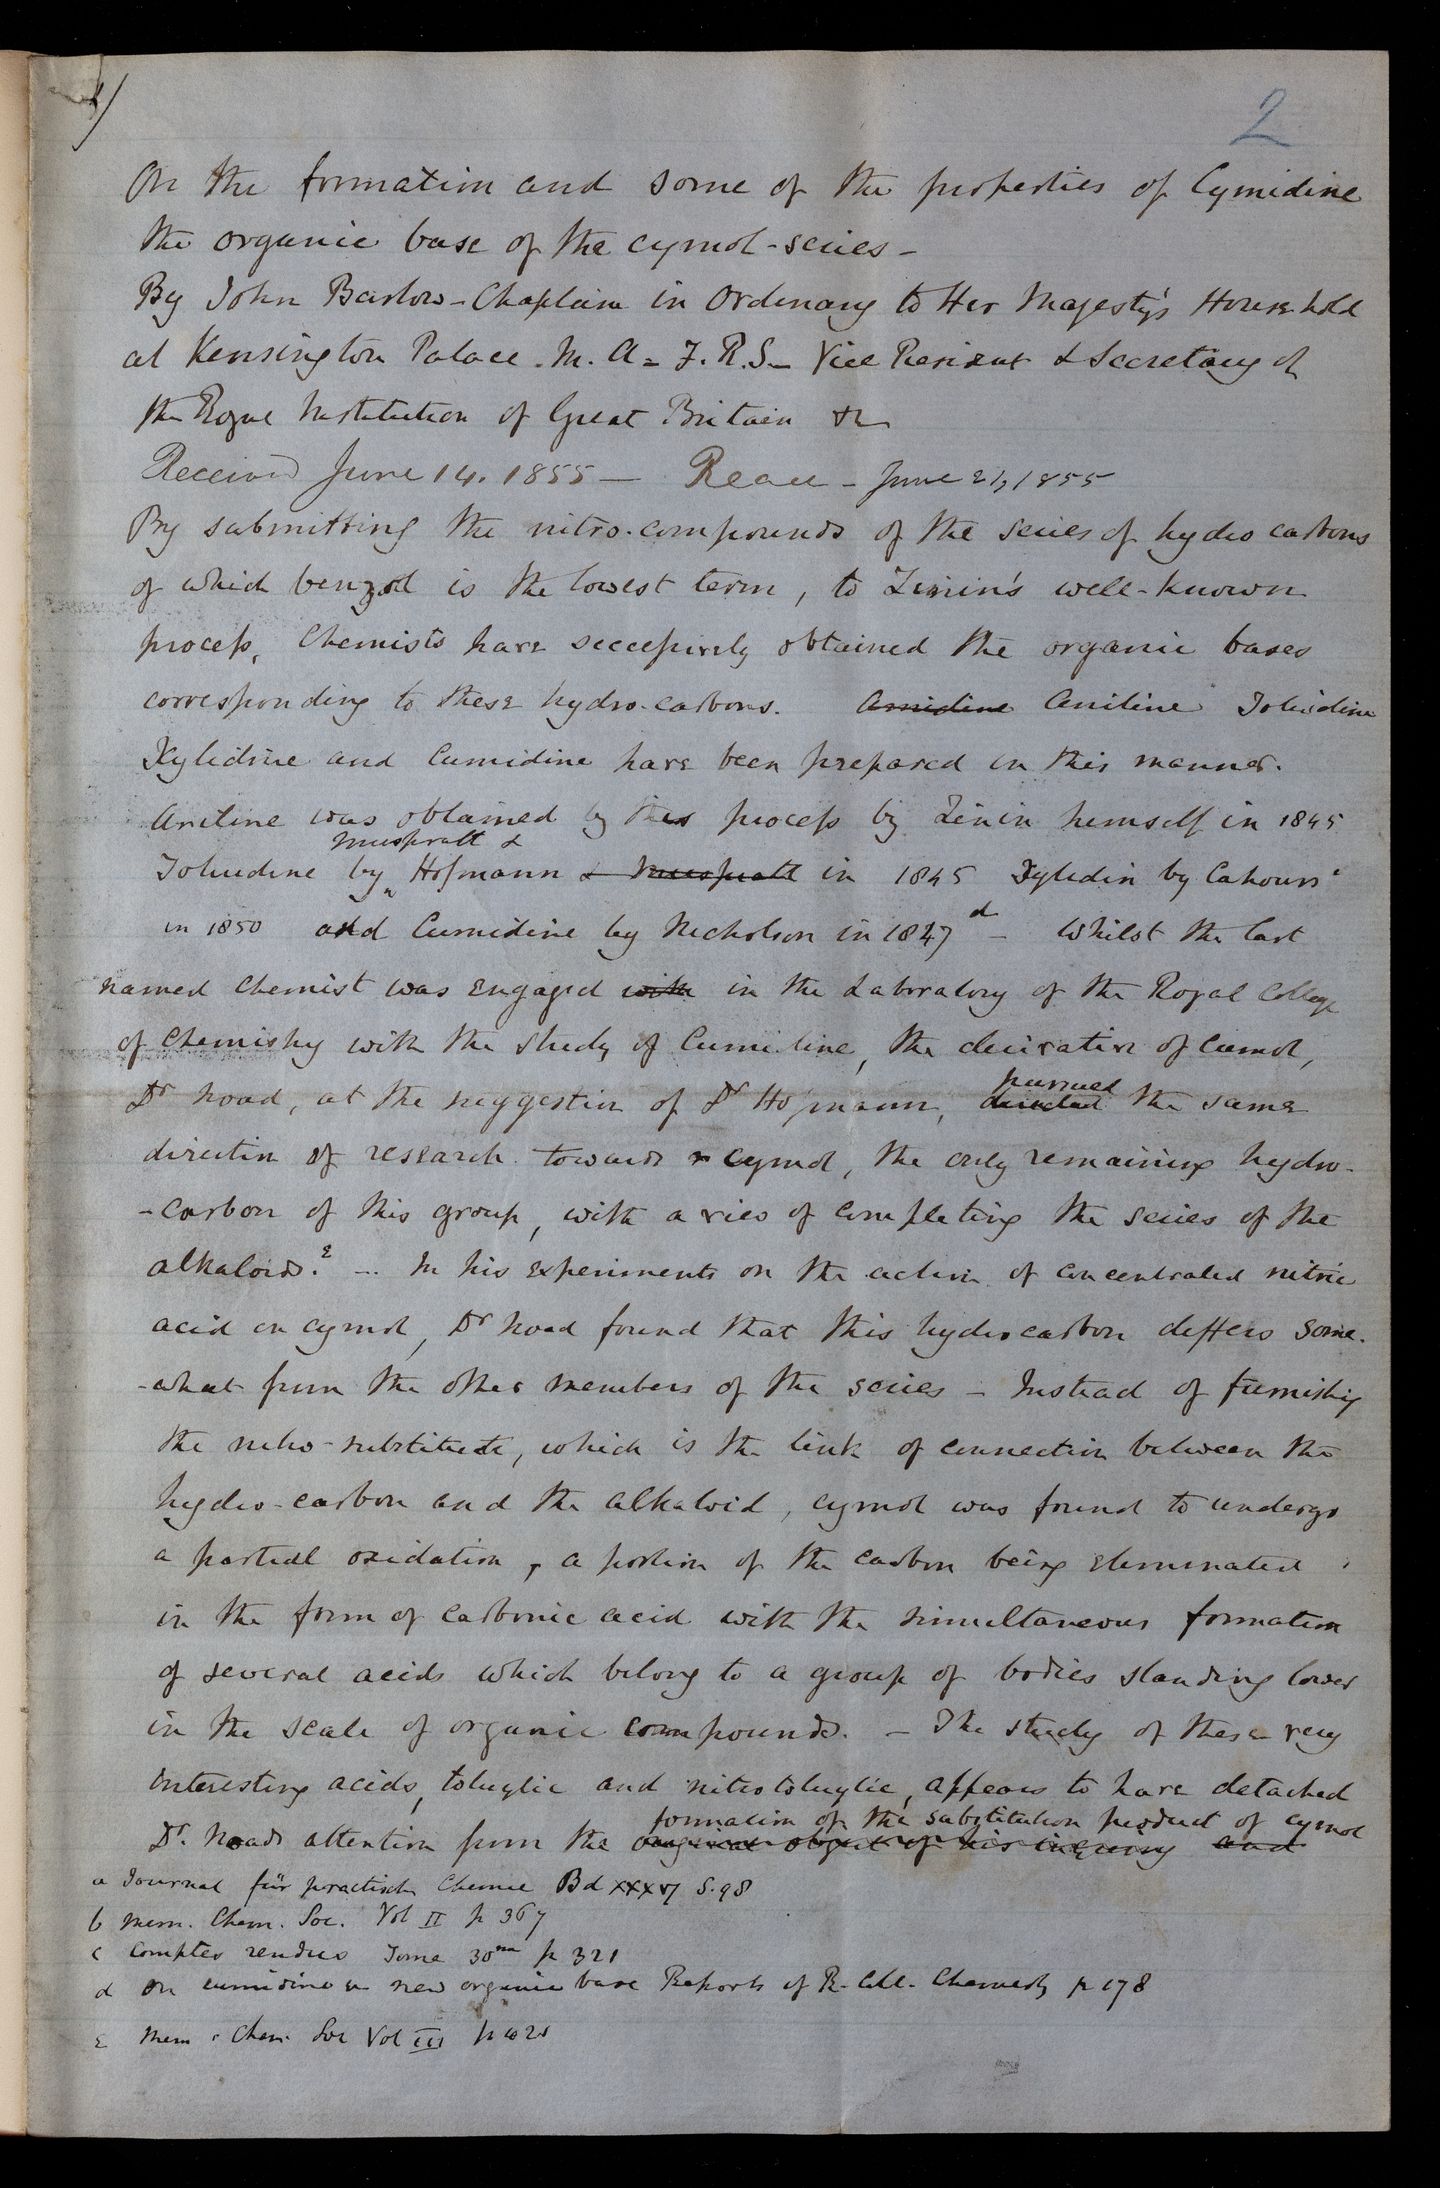 2
On the formation and some of the properties of Cymidine
the organic base of the cymol-series -
By John Barlow - Chaplain in Ordinary to Her Majesty's Household
at Kensington Palace - M. A - F. R. S - Vice President & Secretary of
the Royal Institution of Great Britain &c
Received June 14. 1855 - Read - June 21, 1855
By submitting the nitro-compounds of the series of hydro carbons
of which benzol is the lowest term, to Zinin's well-known
process, Chemists have successively obtained the organic bases
corresponding to these hydro-carbons. Amidine Aniline Toluidine
Xylidine and Cumidine have been prepared in this manner.
Aniline was obtained by this process by Zinin himself in 1845
Muspratt &
Toluidine by Hofmann & Muspratt in 1845 Xylidin by Cahours c
in 1850 and Cumidine by Nicholson in 1847 d - Whilst the last
named Chemist was engaged with in the Laboratory of the Royal College
of Chemistry with the study of Cumidine, the derivative of Cumol,
pursued
Dr Noad, at the suggestion of Dr Hofmann, directed the same
direction of research towards cymol, the only remaining hydro-
-carbon of this group, with a view of completing the series of the
alkaloids. e - In his experiments on the action of concentrated nitric
acid on cymol, Dr Noad found that this hydrocarbon differs some-
-what from the other members of the series - Instead of furnishing
the nitro-substitute, which is the link of connection between the
hydro-carbon and the alkaloid, cymol was found to undergo
a partial oxidation, a portion of the carbon being eliminated
in the form of carbonic acid with the simultaneous formation
of several acids which belong to a group of bodies standing lower
in the scale of organic compounds. - The study of these very
interesting acids, toluylic and nitrotoluylic, appears to have detached
formation of the substitution product of cymol
Dr. Noads attention from the original object of his inquiry and
a Journal für practisch Chemie Bd XXXVI S. 98
b Mem. Chem. Soc. Vol II p 367
c Comptes rendus Tome 30me p 321
d On cumidine a new organic base Reports of R. Coll. Chemistry p 178
e Mem. Chem. Soc Vol III p 421